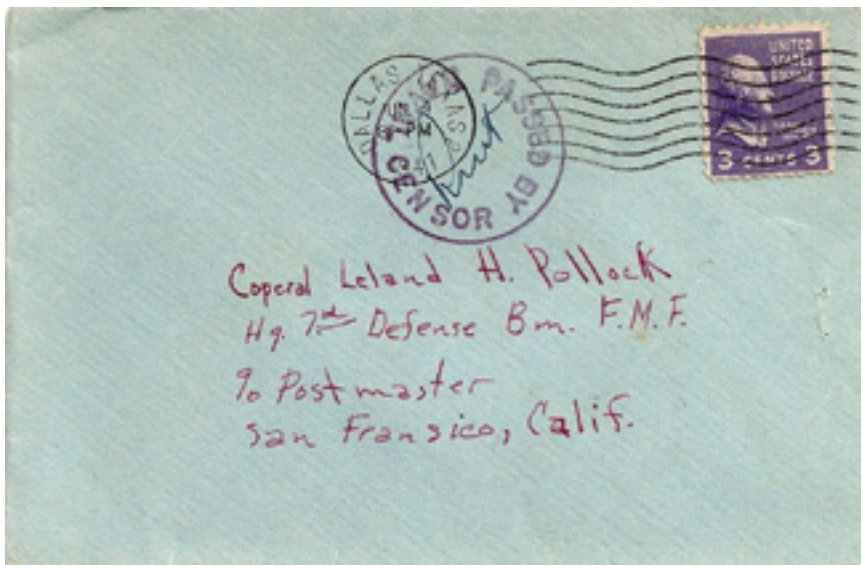 DALLAS TEXAS 2
PASSED BY
CENSOR
UNITED
STATES
3 CENTS 3
Coperal Leland H. Pollock
Hq. 7th Defense Bm. F.M.F.
% Postmaster
San Fransico, Calif.